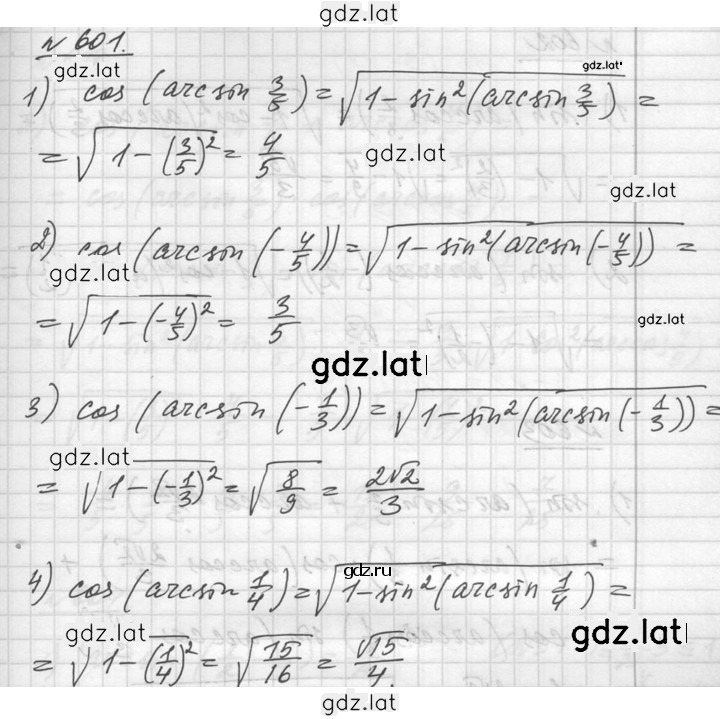 gdz.lat
№ 601.
gdz.lat
gdz.lat
1) cos (arcsin 3/5) = √(1 - sin²(arcsin 3/5)) =
= √(1 - (3/5)²) = 4/5
gdz.lat
gdz.lat
2) cos (arcsin (-4/5)) = √(1 - sin²(arcsin (-4/5))) =
gdz.lat
= √(1 - (-4/5)²) = 3/5
gdz.lat
gdz.lat
3) cos (arcsin (-1/3)) = √(1 - sin²(arcsin (-1/3))) =
gdz.lat
= √(1 - (-1/3)²) = √(8/9) = 2√2/3
gdz.ru
4) cos (arcsin 1/4) = √(1 - sin²(arcsin 1/4)) =
gdz.lat
gdz.lat
= √(1 - (1/4)²) = √(15/16) = √15/4.
gdz.lat